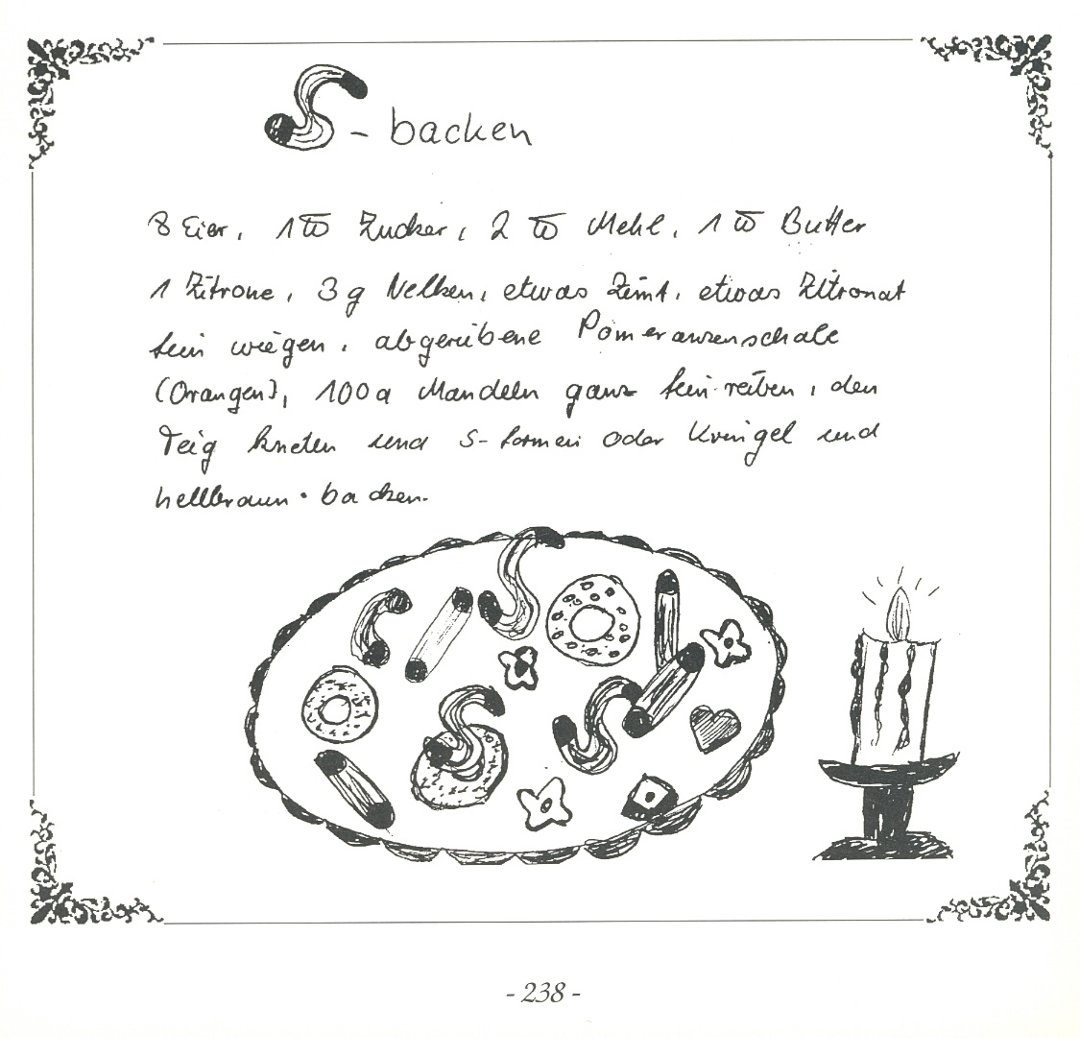 S - backen
8 Eier, 1 ℔ Zucker, 2 ℔ Mehl, 1 ℔ Butter
1 Zitrone, 3 g Nelken, etwas Zimt, etwas Zitronat
fein wiegen, abgeriebene Pomeranzenschale
(Orangen), 100 g Mandeln ganz fein reiben, den
Teig kneten und S-formen oder Kringel und
hellbraun backen.
- 238 -